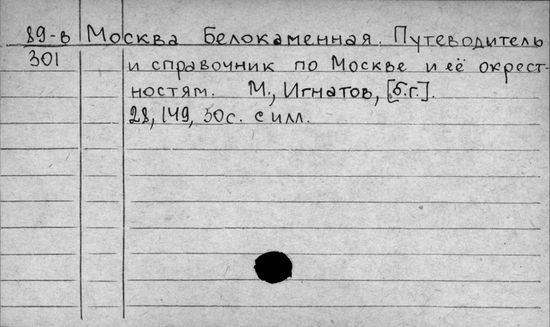 89-в Москва Белокаменная. Путеводитель
301 и справочник по Москве и её окрест-
ностям. М., Игнатов, [б.г.].
28, 149, 50с. с илл.